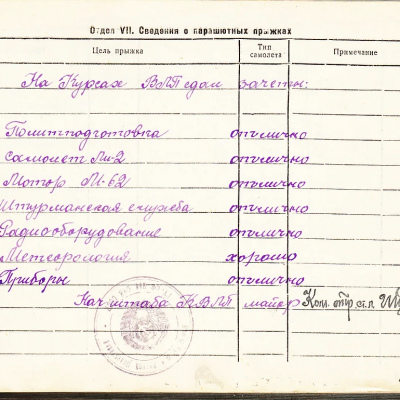 Отдел VII. Сведения о парашютных прыжках
Цель прыжка Тип самолета Примечание
На Курсах ВЛП сдал зачеты:
Политподготовка отлично
самолет Ли-2 отлично
Мотор М-62 отлично
Штурманская служба отлично
Радиооборудование отлично
Метеорология хорошо
Приборы отлично
Нач штаба КВЛП майор Ком. отр. ст. л.